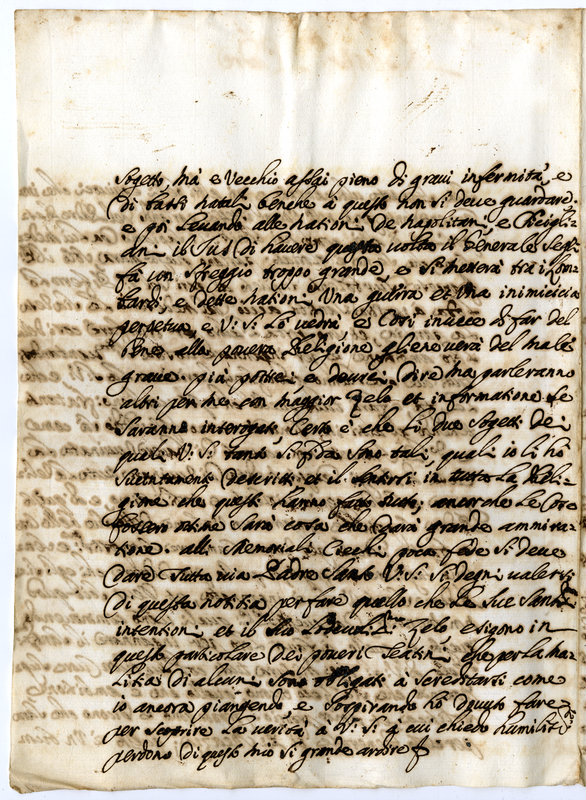 sogetto, mà è Vecchio assai pieno di gravi infermità, e
di bassi natali, benche à questo non si deve guardare.
e poi levando alle nationi de napolitani, e Sicigli-
ani il Jus di havere questa volta il Generale se gli
fà un spreggio troppo grande, e si metterà trà i lom-
bardi, e dette nationi una guerra et una inimicicia
perpetua, e V: S: lo vedrà, e così invece di far del
bene alla povera Religione gliene verà del male
grave. più potrei e dovrei dire ma parleranno
altri per me con maggior zelo et informatione se
saranno interogati, Certo è che li due sogetti dei
quali V: S: tanto si fida sono tali, quali io li hò
sucintamente descritti et il sentirsi in tutta la Reli-
gione che questi hanno fatto tutto, ancorche le loro
fossero ottime sarà cosa che darà grande ammira-
tione. alli Memoriali Ciechi poca fede si deve
dare tutta via Padre Santo V: S: si degni valersi
di questa notitia per fare quello che le sue Sante
intentioni, et il suo zelo, esigono in
questo particolare dei poveri Teatini che per la ma-
litia di alcuni sono obligati à screditarsi come
io ancora piangendo, e sospirando hò dovuto fare
per scoprire la verità à V: S: à cui chiedo humiliss:
perdono di questo mio si grande ardire